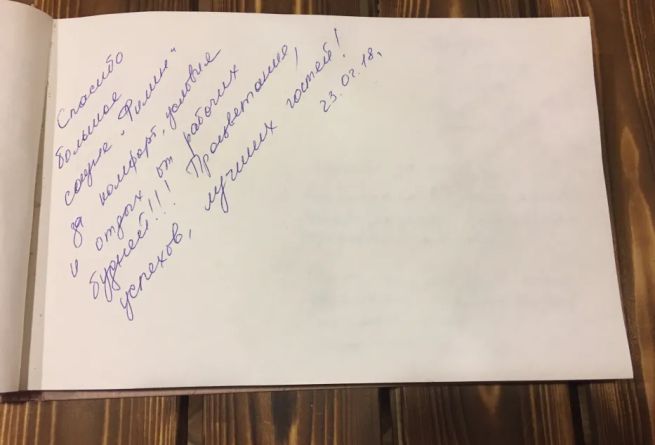 Спасибо
большое
сауне "Филин"
за комфорт, условие
и отдых от рабочих
будней!!! Процветание,
успехов, лучших гостей!
23.02.18,